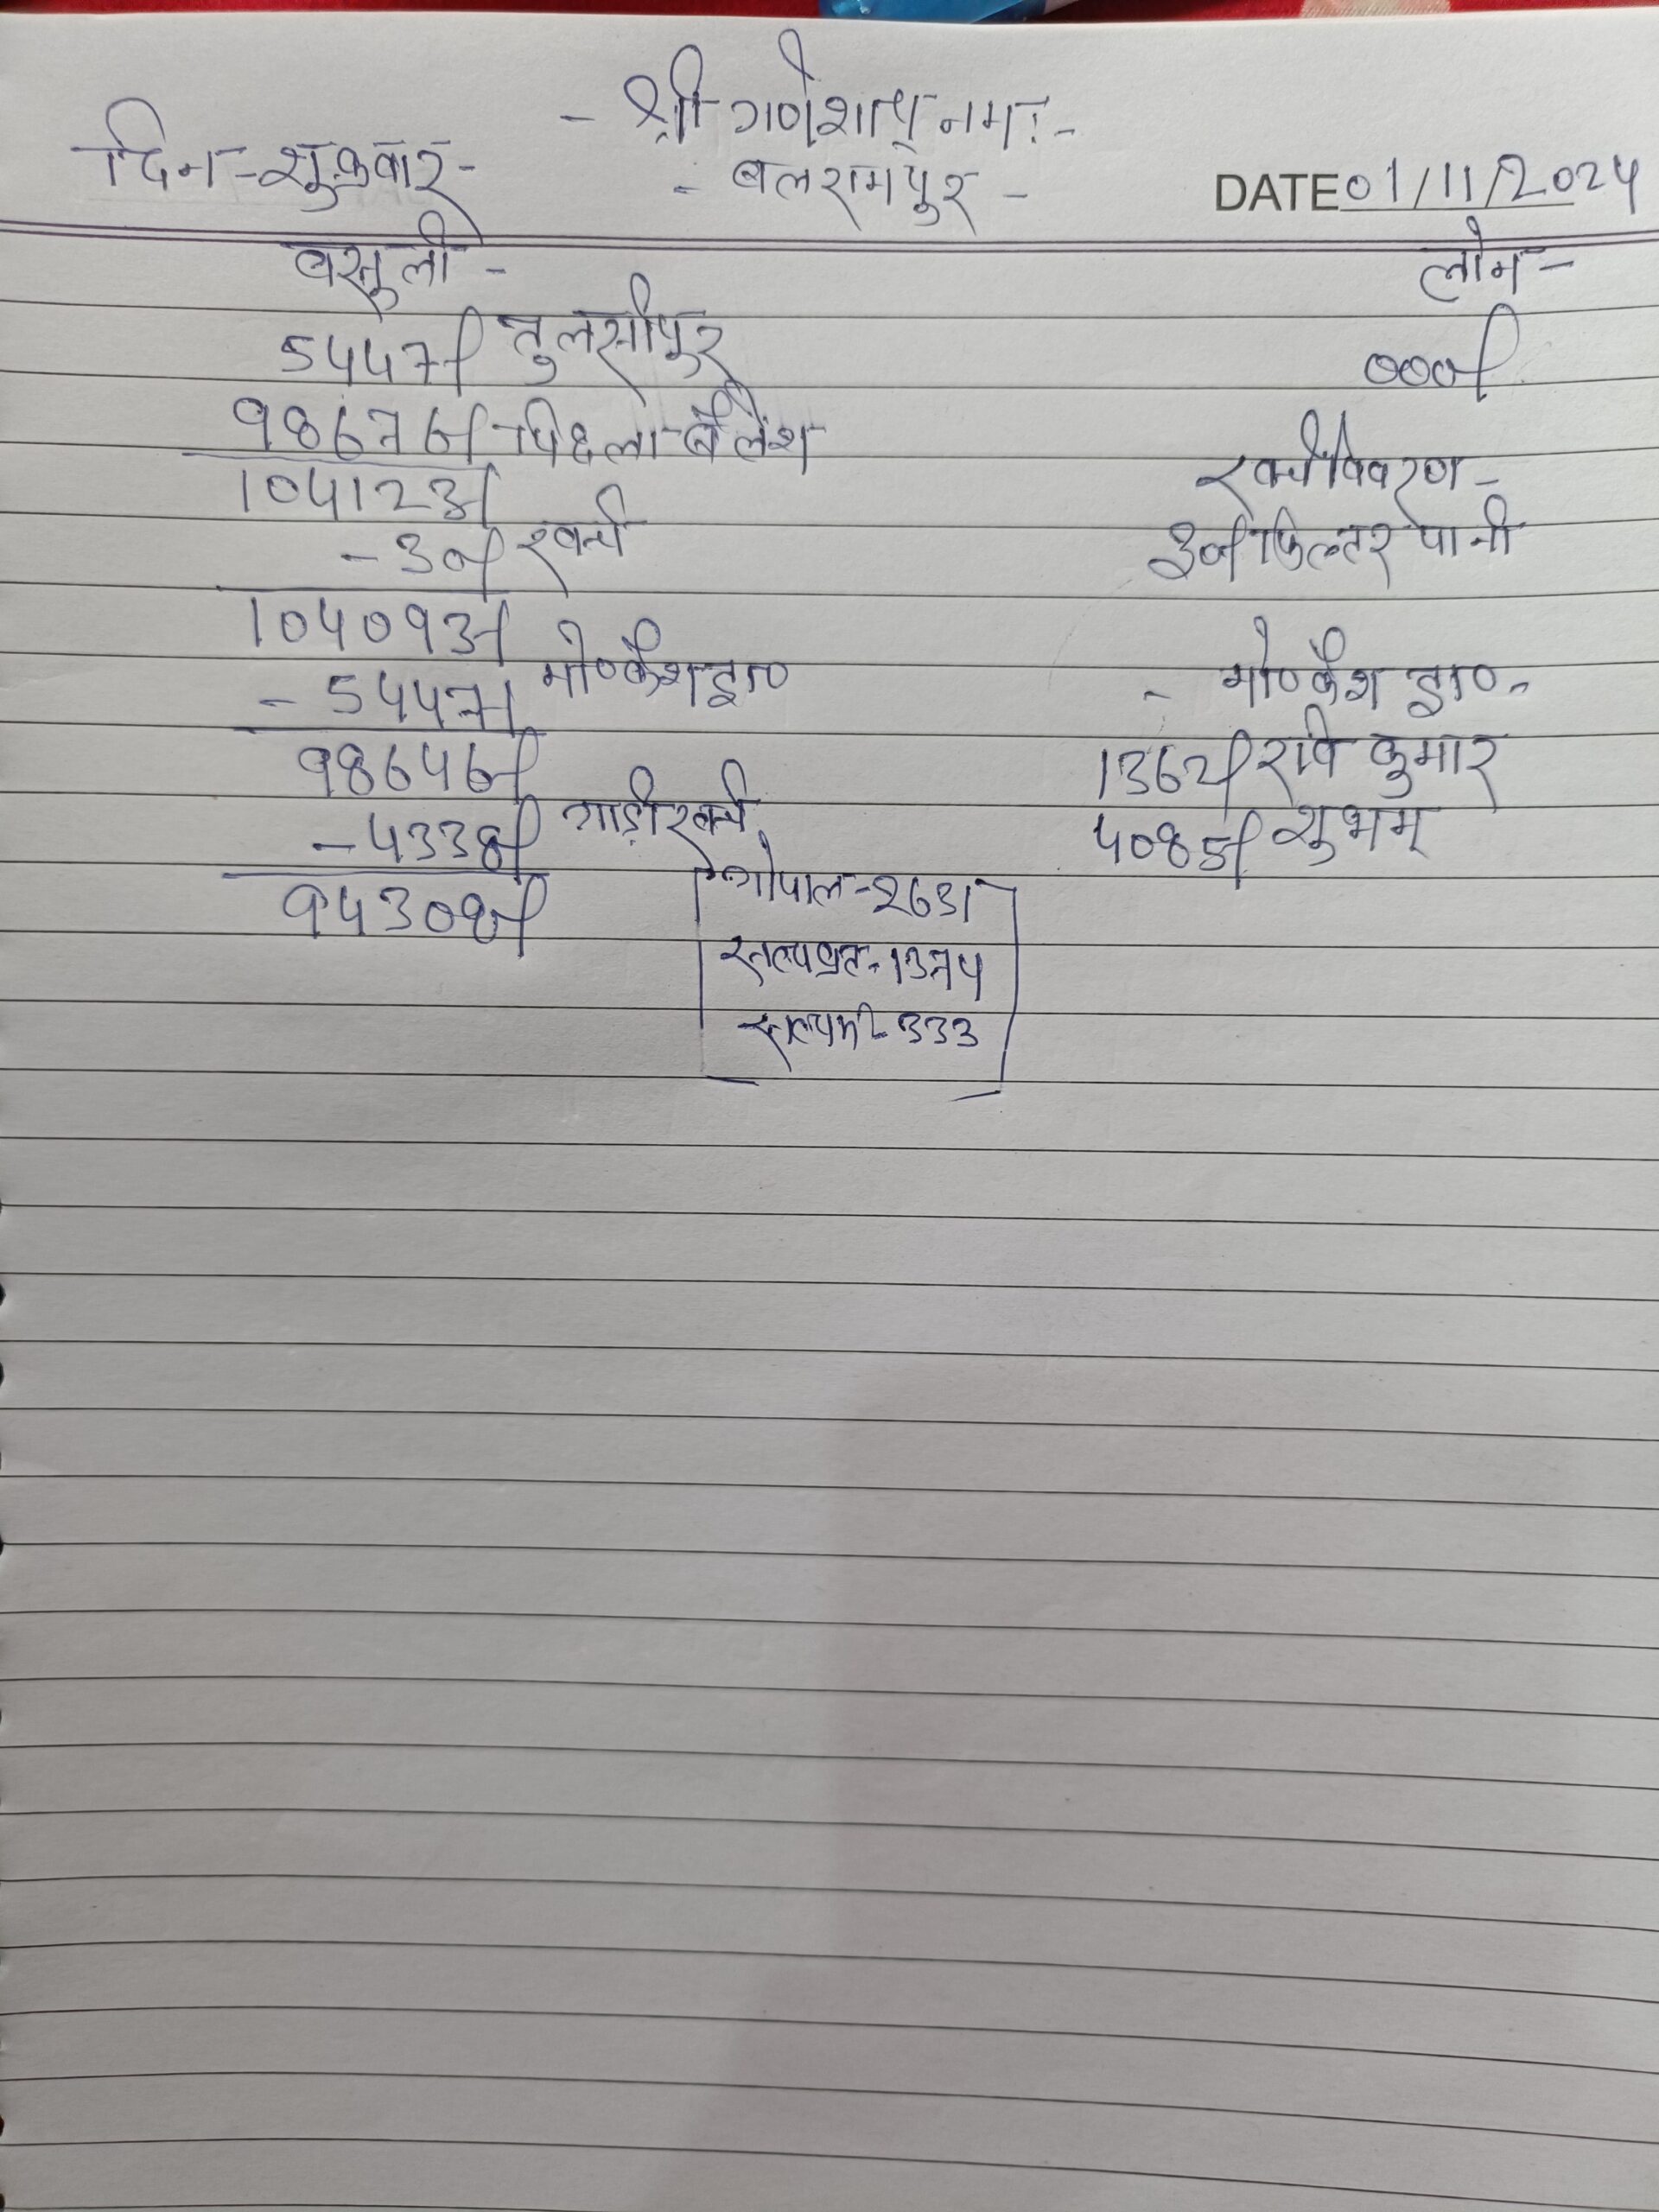 - श्री गणेशाय नमः -
दिन - शुक्रवार -
- बलरामपुर -
DATE 01/11/2024
वसूली -
लोन -
5447/ तुलसीपुर
000/
98676/ पिछला बैलेंश
104123/
खर्च विवरण -
- 30/ खर्च
30/ फिल्टर पानी
104093/
- 5447/ मो० कैश इा०
- मो० कैश इा० -
98646/
1362/ रवि कुमार
- 4338/ गाड़ी खर्च
4085/ शुभम्
94308/
गोपाल - 2631
सत्यव्रत - 1374
सत्यम - 333